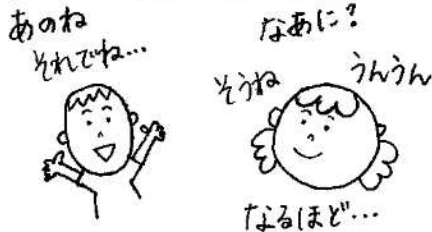 あのね
それでね…
なあに？
そうね
うんうん
なるほど…